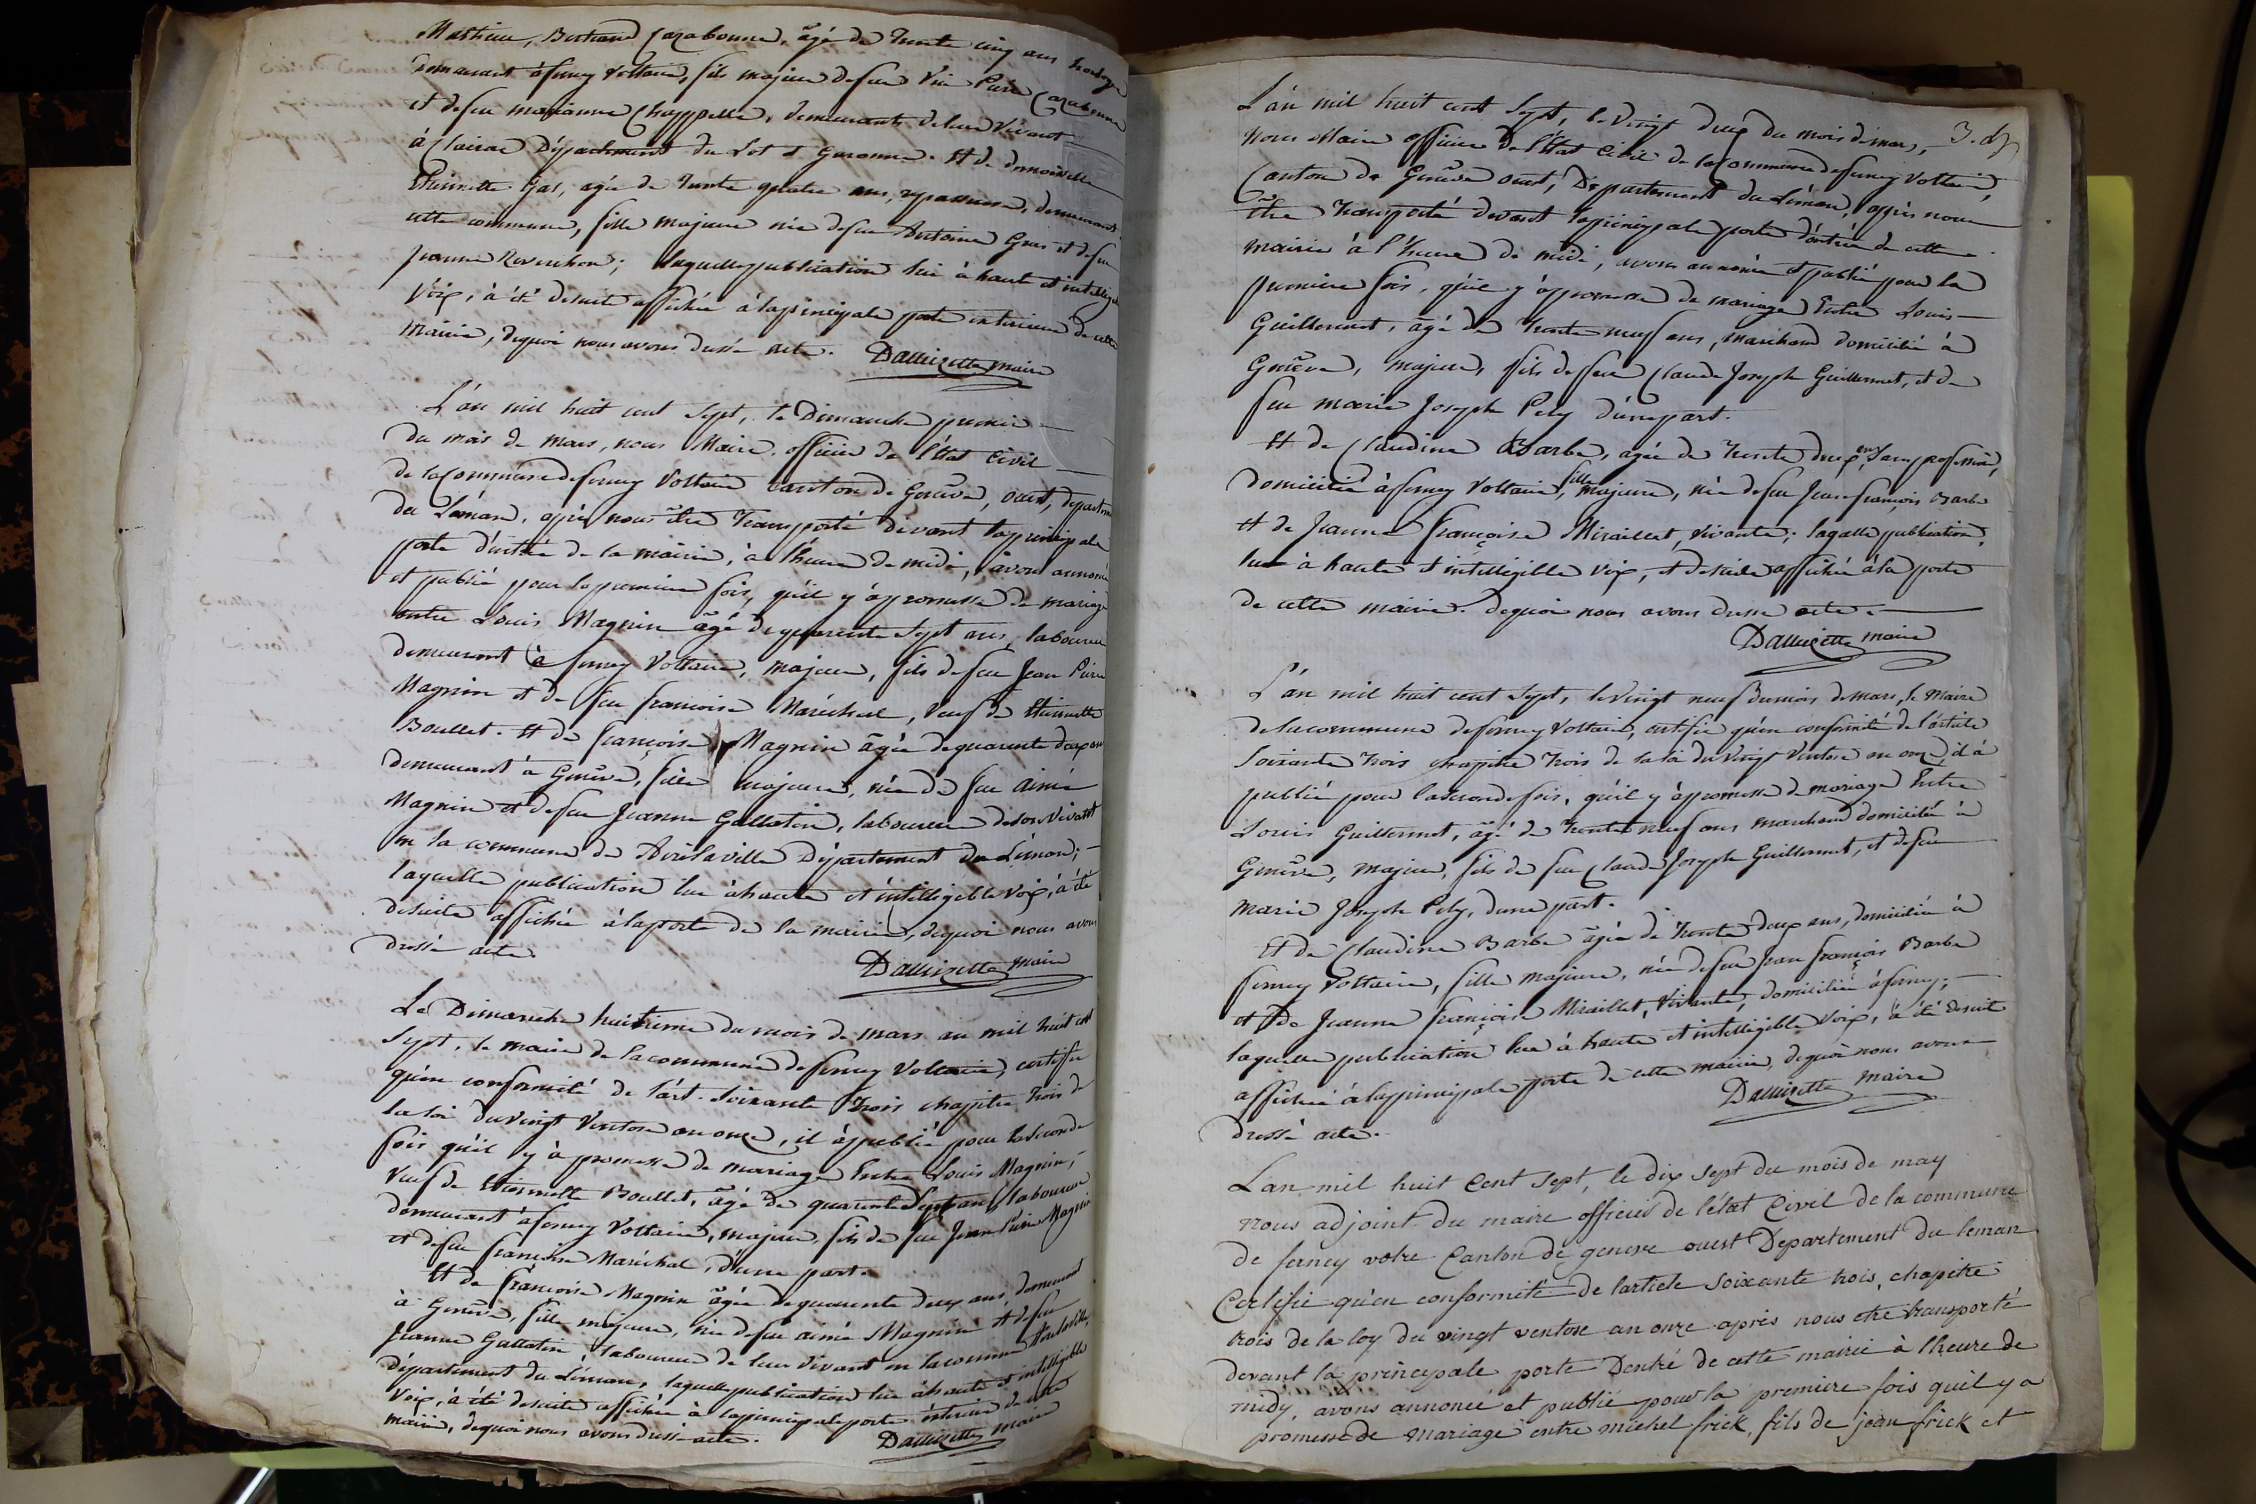 Mathieu, Bertrand Cazabonne, âgé de Trente cinq ans horloger
Demeurant à ferney Voltaire, fils majeur de feu Pierre Cazabonne
et de feu marianne Chappelle, demeurants de leur Vivant
à Clairac Département du Lot et Garonne. Et de demoiselle
Etiennette Gas, agée de Trente quatre ans, repasseuse, demeurant
cette commune, fille majeure née de feu Antoine Gras et de feu
Jeanne Reverchon; laquelle publication lue à haute et intelligible
Voix, à été desuite affichée à la principale porte interieure de cette
Mairie, dequoi nous avons dressé acte. Dallizette maire
L'an mil huit cent Sept, le Dimanche premier
du mois de mars, nous Maire officier de l'Etat civil
de la Commune de ferney Voltaire canton de Genêve, ouest, département
du Léman, après nous être Transporté devant la principale
porte d'entrée de la mairie, à l'heure de midi, avons annoncé
et publié pour la premiere fois, qu'il y à promesse de mariage
entre Louis Magnin âgé de quarente Sept ans, laboureur
demeurant à ferney Voltaire, majeur, fils de feu Jean Pierre
Magnin et de feu francoise Maréchal, Veuf de Etiennette
Boullet. Et de françoise Magnin âgée de quarente deux ans
demeurant à Genêve, fille majeure, née de feu Aimé
Magnin et de feu Jeanne Gallatin, laboureur de son Vivant
en la commune de Département du Léman;
laquelle publication lue à haute et intelligible voix, à été
desuite affichée à la porte de la mairie, dequoi nous avons
dressé acte. Dallizette maire
Le Dimanche huitieme du mois de mars an mil huit cent
Sept, le maire de la commune de ferney Voltaire, certifie
qu'en conformité de l'art. Soixante Trois chapitre Trois de
la loi du vingt Ventose an onze, il à publié pour la Seconde
fois qu'il y à promesse de mariage Entre Louis Magnin,
Veuf de Etiennette Boullet, âgé de quarente Sept ans, laboureur
demeurant à ferney Voltaire, majeur, fils de feu Jean Pierre Magnin
et de feu françoise Maréchal, d'une part.
Et de françoise Magnin âgée de quarente deux ans, demeurant
à Genêve, fille majeure, née de feu aimé Magnin et de feu
Jeanne Gallatin, laboureur de leur Vivant en la commune
département du Léman, laquelle publication lue à haute et intelligible
Voix, à été desuite affichée à la principale porte interieure de cette
mairie, dequoi nous avons dressé acte. Dallizette maire
L'an mil huit cent Sept, le Vingt deux du mois de mars,
Nous Maire officier de l'Etat Civil de la Commune de ferney Voltaire,
Canton de Genêve ouest, Département du Léman, après nous
être Transporté devant la principale porte d'entrée de cette
Mairie à l'heure de midi, avons annoncé et publié pour la
premiere fois, qu'il y à promesse de mariage Entre Louis
Guillermet, âgé de Trente neuf ans, marchand domicilié à
Genêve, majeur, fils de feu Claude Joseph Guillermet, et de
feu marie Joseph Pely d'une part.
Et de Claudine Barbe, agée de Trente deux ans, Sans profession,
domiciliée à ferney Voltaire, fille majeure, née de feu Jean françois Barbe
et de Jeanne françoise Miraillet, vivante; laquelle publication,
lue à haute et intelligible voix, et desuite affichée à la porte
de cette mairie. dequoi nous avons dressé acte.
Dallizette maire
L'an mil huit cent Sept, le vingt neuf du mois de mars, le Maire
de la commune de ferney Voltaire, certifie qu'en conformité de l'article
Soixante Trois chapitre Trois de la loi du Vingt Ventose an onze, il à
publié pour la seconde fois, qu'il y à promesse de mariage Entre
Louis Guillermet, âgé de Trente neuf ans marchand domicilié à
Genêve, majeur, fils de feu Claude Joseph Guillermet, et de feu
Marie Joseph Pely, d'une part.
Et de Claudine Barbe âgée de Trente deux ans, domiciliée à
ferney Voltaire, fille majeure, née de feu Jean françois Barbe
et de Jeanne françoise Miraillet, Vivante, domiciliée à ferney;
laquelle publication lue à haute et intelligible Voix, à été desuite
affichée à la principale porte de cette mairie, dequoi nous avons
dressé acte. Dallizette maire
L'an mil huit Cent Sept, le dix sept du mois de may
nous adjoint du maire officier de l'état Civil de la commune
de ferney votre Canton de geneve ouest Departement du leman
Certifie qu'en conformité de l'article Soixante trois, chapitre
trois de la loy du vingt ventose an onze après nous etre transporté
devant la principale porte Dentré de cette mairie à l'heure de
midy, avons annoncé et publié pour la premiere fois quil y a
promesse de mariage entre michel frick, fils de jean frick et